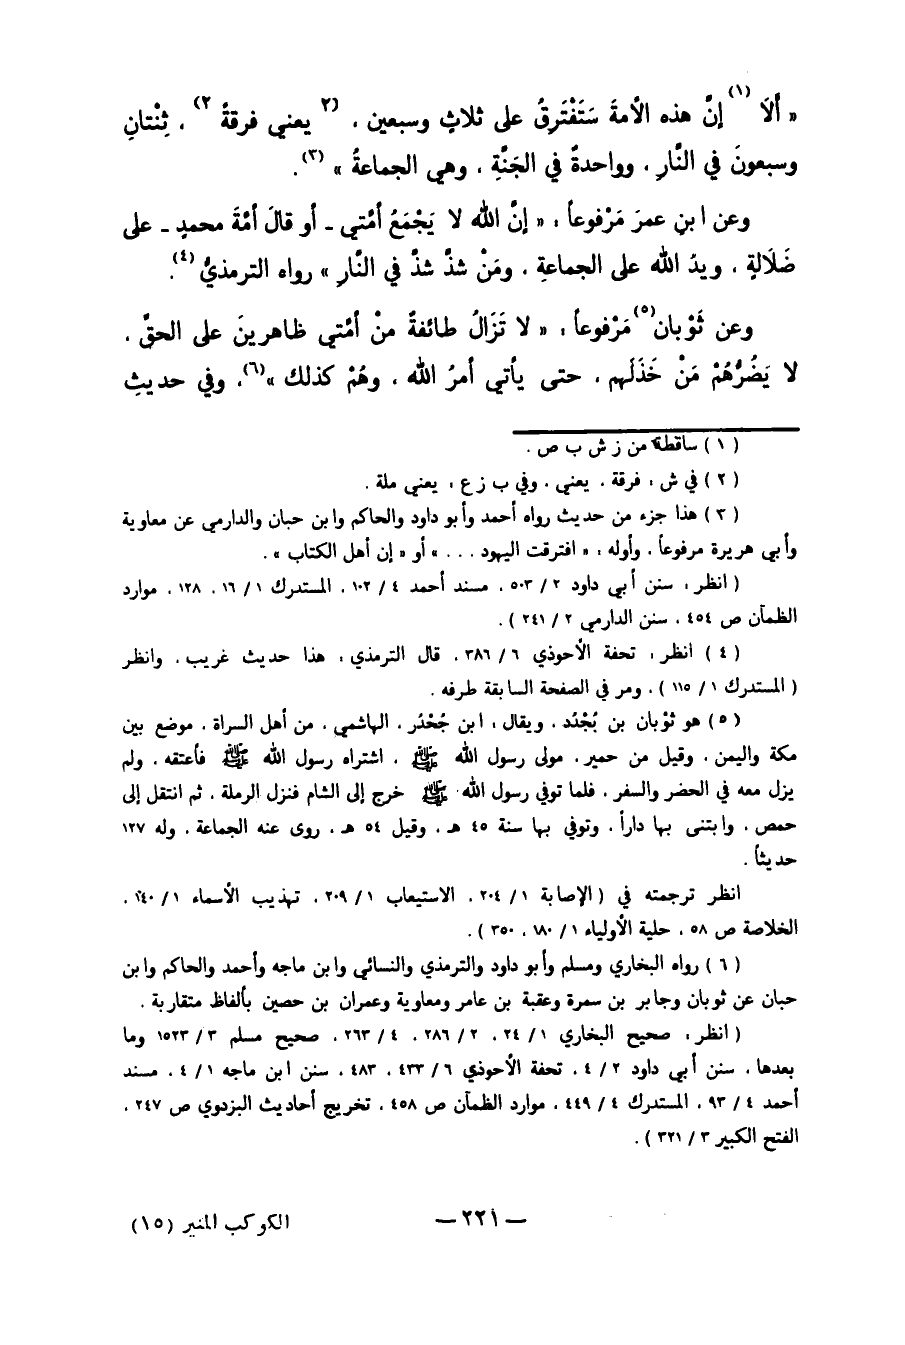 « أَلاَ (١) إنَّ هذه الأمةَ سَتَفْتَرِقُ على ثلاثٍ وسبعين ، (٢ يعني فرقةً ٢) ، ثِنْتانِ
وسبعونَ في النَّارِ ، وواحدةٌ في الجَنَّةِ ، وهي الجماعةُ » (٣) .
وعن ابنِ عمرَ مَرْفوعاً : « إنَّ الله لا يَجْمَعُ أمَّتي - أو قالَ أمَّةَ محمدٍ - على
ضَلَالةٍ ، ويدُ الله على الجماعةِ ، ومَنْ شذَّ شذَّ في النَّارِ » رواه الترمذيُّ (٤) .
وعن ثَوْبان (٥) مَرْفوعاً : « لا تَزَالُ طائفةٌ منْ أمَّتي ظاهرينَ على الحقِّ ،
لا يَضُرُّهُمْ مَنْ خَذَلَهم ، حتى يأتي أمرُ الله ، وهُمْ كذلك » (٦) ، وفي حديثِ
( ١ ) ساقطة من ز ش ب ص .
( ٢ ) في ش : فرقة ، يعني ، وفي ب ز ع : يعني ملة .
( ٣ ) هذا جزء من حديث رواه أحمد وأبو داود والحاكم وابن حبان والدارمي عن معاوية
وأبي هريرة مرفوعاً ، وأوله : « افترقت اليهود . . . » أو « إن أهل الكتاب » .
( انظر : سنن أبي داود ٢ / ٥٠٣ ، مسند أحمد ٤ / ١٠٢ ، المستدرك ١ / ١٦ ، ١٢٨ ، موارد
الظمآن ص ٤٥٤ ، سنن الدارمي ٢ / ٢٤١ ) .
( ٤ ) انظر : تحفة الأحوذي ٦ / ٣٨٦ ، قال الترمذي : هذا حديث غريب ، وانظر
( المستدرك ١ / ١١٥ ) ، ومر في الصفحة السابقة طرفه .
( ٥ ) هو ثوْبان بن بُجْدُد ، ويقال : ابن جُحْدُر ، الهاشمي ، من أهل السراة ، موضع بين
مكة واليمن ، وقيل من حمير ، مولى رسول الله ﷺ ، اشتراه رسول الله ﷺ فأعتقه ، ولم
يزل معه في الحضر والسفر ، فلما توفي رسول الله ﷺ خرج إلى الشام فنزل الرملة ، ثم انتقل إلى
حمص ، وابتنى بها داراً ، وتوفي بها سنة ٤٥ هـ ، وقيل ٥٤ هـ ، روى عنه الجماعة ، وله ١٢٧
حديثاً .
انظر ترجمته في ( الإصابة ١ / ٢٠٤ ، الاستيعاب ١ / ٢٠٩ ، تهذيب الأسماء ١ / ١٤٠ ،
الخلاصة ص ٥٨ ، حلية الأولياء ١ / ١٨٠ ، ٣٥٠ ) .
( ٦ ) رواه البخاري ومسلم وأبو داود والترمذي والنسائي وابن ماجه وأحمد والحاكم وابن
حبان عن ثوبان وجابر بن سمرة وعقبة بن عامر ومعاوية وعمران بن حصين بألفاظ متقاربة .
( انظر : صحيح البخاري ١ / ٢٤ ، ٢ / ٢٨٦ ، ٤ / ٢٦٣ ، صحيح مسلم ٣ / ١٥٢٣ وما
بعدها ، سنن أبي داود ٢ / ٤ ، تحفة الأحوذي ٦ / ٤٣٣ ، ٤٨٣ ، سنن ابن ماجه ١ / ٤ ، مسند
أحمد ٤ / ٩٣ ، المستدرك ٤ / ٤٤٩ ، موارد الظمآن ص ٤٥٨ ، تخريج أحاديث البزدوي ص ٢٤٧ ،
الفتح الكبير ٣ / ٣٢١ ) .
– ٢٢١ –
الكوكب المنير (١٥)